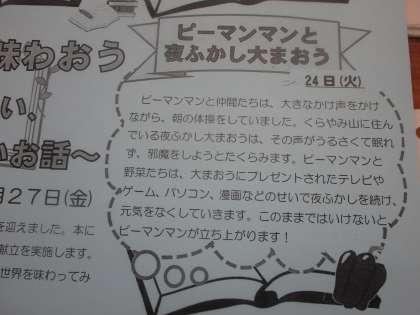 味わおう
い、
いお話～
月27日(金)
を迎えました。本に
献立を実施します。
世界を味わってみ
ピーマンマンと
夜ふかし大まおう
24日(火)
ピーマンマンと仲間たちは、大きなかけ声をかけ
ながら、朝の体操をしていました。くらやみ山に住ん
でいる夜ふかし大まおうは、その声がうるさくて眠れ
ず、邪魔をしようとたくらみます。ピーマンマンと
野菜たちは、大まおうにプレゼントされたテレビや
ゲーム、パソコン、漫画などのせいで夜ふかしを続け、
元気をなくしていきます。このままではいけないと、
ピーマンマンが立ち上がります！